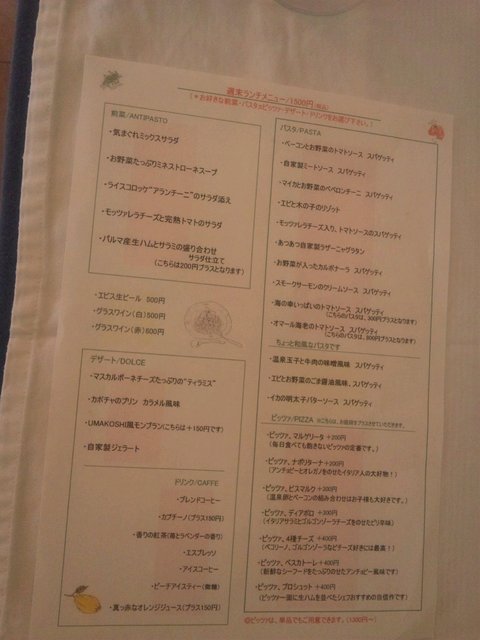 週末ランチメニュー/1500円(税込)
(*お好きな前菜・パスタorピッツァ・デザート・ドリンクをお選び下さい。)
前菜/ANTIPASTO
・気まぐれミックスサラダ
・お野菜たっぷりミネストローネスープ
・ライスコロッケ"アランチーニ"のサラダ添え
・モッツァレラチーズと完熟トマトのサラダ
・パルマ産生ハムとサラミの盛り合わせ
サラダ仕立て
(こちらは200円プラスとなります)
・エビス生ビール 500円
・グラスワイン(白)500円
・グラスワイン(赤)500円
デザート/DOLCE
・マスカルポーネチーズたっぷりの"ティラミス"
・カボチャのプリン カラメル風味
・UMAKOSHI風モンブラン(こちらは+150円です)
・自家製ジェラート
ドリンク/CAFFE
・ブレンドコーヒー
・カプチーノ(プラス150円)
・香りの紅茶(苺とラベンダーの香り)
・エスプレッソ
・アイスコーヒー
・ピーチアイスティー(微糖)
・真っ赤なオレンジジュース(プラス150円)
パスタ/PASTA
・ベーコンとお野菜のトマトソース スパゲッティ
・自家製ミートソース スパゲッティ
・マイカとお野菜のペペロンチーニ スパゲッティ
・エビと木の子のリゾット
・モッツァレラチーズ入り、トマトソースのスパゲッティ
・あつあつ自家製ラザーニャグラタン
・お野菜が入ったカルボナーラ スパゲッティ
・スモークサーモンのクリームソース スパゲッティ
・海の幸いっぱいのトマトソース スパゲッティ
(こちらのパスタは、300円プラスとなります)
・オマール海老のトマトソース スパゲッティ
(こちらのパスタは、800円プラスとなります)
ちょっと和風なパスタです
・温泉玉子と牛肉の味噌風味 スパゲッティ
・エビとお野菜のごま醤油風味、スパゲッティ
・イカの明太子バターソース スパゲッティ
ピッツァ/PIZZA ※こちらは、お値段をプラスさせていただきます。
・ピッツァ、マルゲリータ +200円
(毎日食べても飽きないピッツァの定番です。)
・ピッツァ、ナポリターナ +200円
(アンチョビーとオレガノをのせたイタリア人の大好物!)
・ピッツァ、ビスマルク +300円
(温泉卵とベーコンの組み合わせはお子様も大好きです。)
・ピッツァ、ディアボロ +300円
(イタリアサラミとゴルゴンゾーラチーズをのせたピリ辛味)
・ピッツァ、4種チーズ +400円
(ペコリーノ、ゴルゴンゾーラなどチーズ好きには最高!)
・ピッツァ、ペスカトーレ +400円
(新鮮なシーフードをたっぷりのせたアンチョビー風味です)
・ピッツァ、プロシュット +400円
(ピッツァ一面に生ハムを並べたシェフおすすめの自信作です)
◎ピッツァは、単品でもご用意できます。(1300円~)